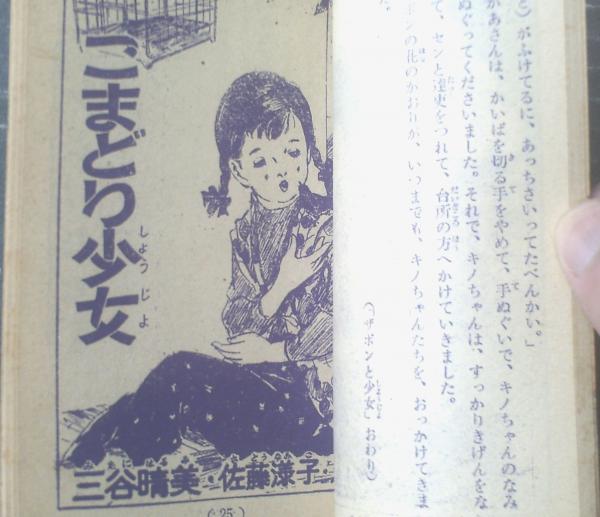 と）がふけてるに、あっちさいってたべんかい。」
かあさんは、かいばを切る手をやめて、手ぬぐいで、キノちゃんのなみ
ぬぐってくださいました。それで、キノちゃんは、すっかりきげんをな
て、センと をつれて、台所の方へかけていきました。
ボンの花のかおりが、いつまでも、キノちゃんたちを、おっかけてきま
た。
（「ザボンと少女」おわり）
こまどり少女
しょうじょ
三谷晴美・佐藤漾子・
(25)